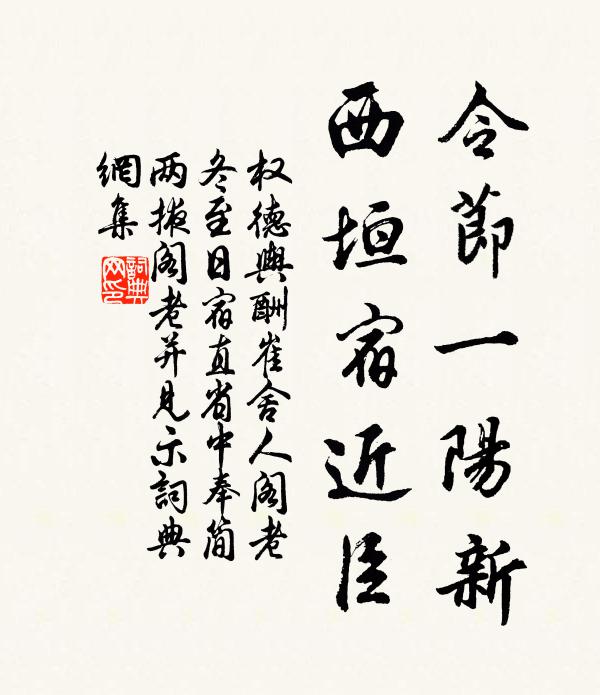 令節一陽新
西垣宿近臣
权德輿酬崔舍人阁老
冬至日宿直省中奉简
两掖阁老并见示詞典
網集
詞典网印